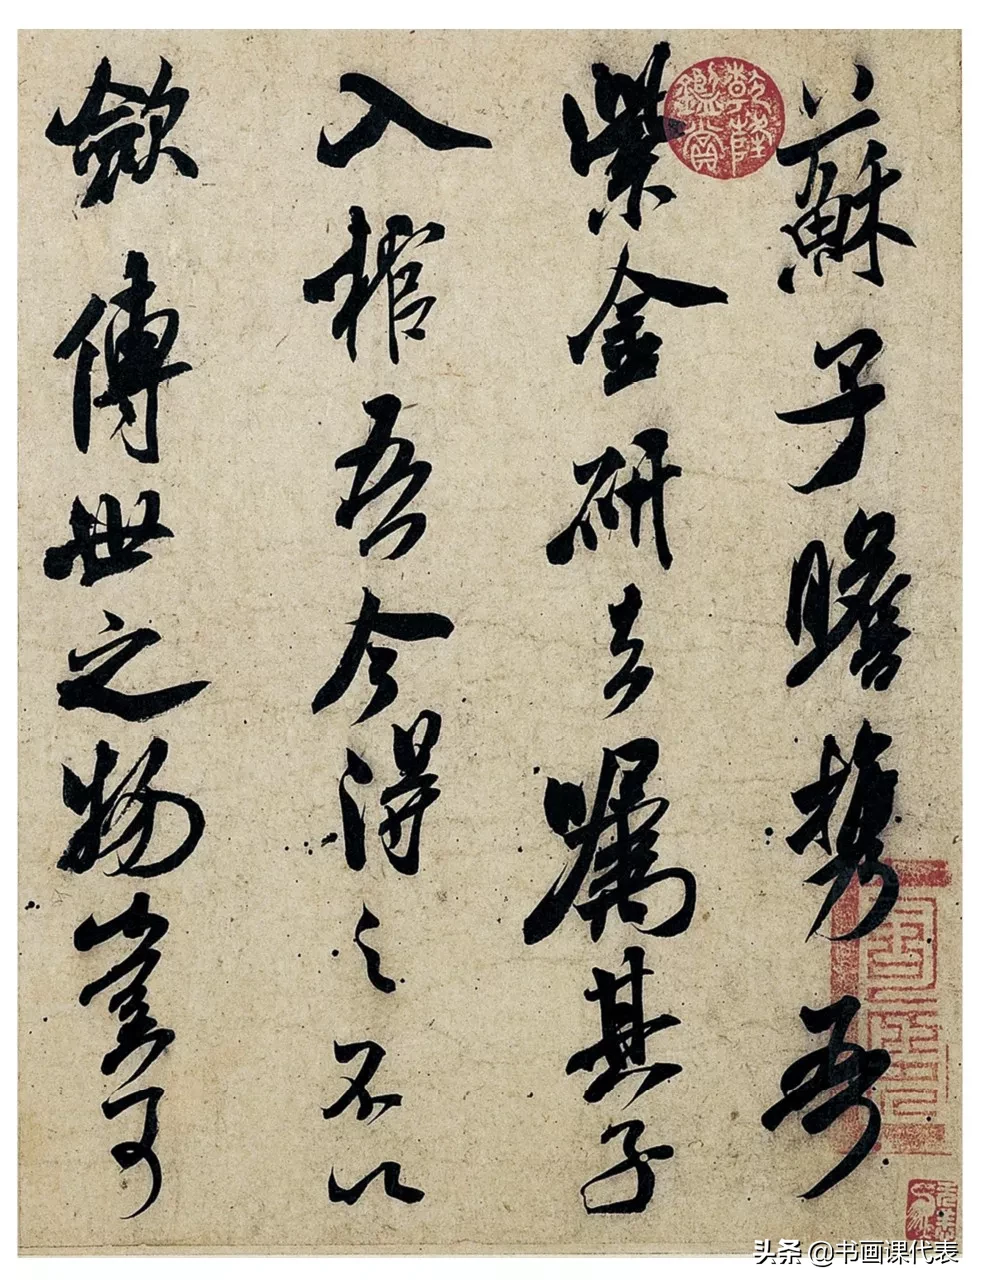 乾隆鑑賞
蘇子瞻携吾
紫金研去嘱其子
入棺吾今得之不以
歛傳世之物豈可
头条 @书画课代表